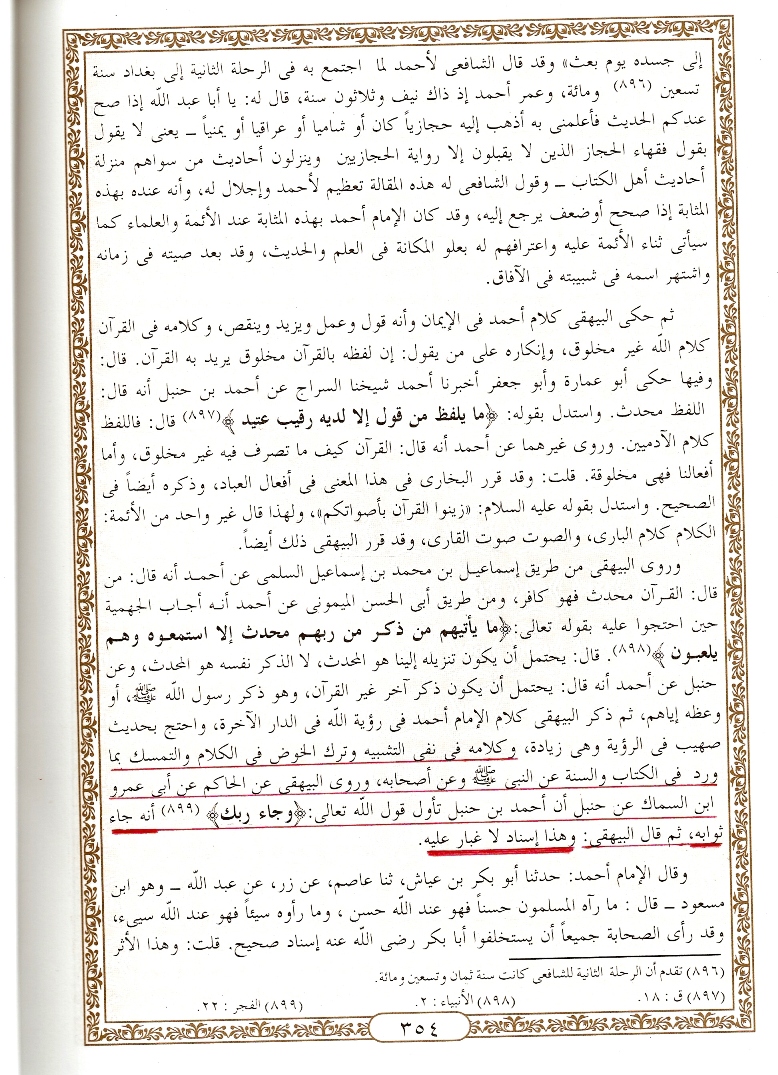 إلى جسده يوم بعث» وقد قال الشافعى لأحمد لما اجتمع به فى الرحلة الثانية إلى بغداد سنة
تسعين (٨٩٦) ومائة، وعمر أحمد إذ ذاك نيف وثلاثون سنة، قال له: يا أبا عبد اللّه إذا صح
عندكم الحديث فأعلمنى به أذهب إليه حجازياً كان أو شاميا أو عراقيا أو يمنياً ــ يعنى لا يقول
بقول فقهاء الحجاز الذين لا يقبلون إلا رواية الحجازيين وينزلون أحاديث من سواهم منزلة
أحاديث أهل الكتاب ــ وقول الشافعى له هذه المقالة تعظيم لأحمد وإجلال له، وأنه عنده بهذه
المثابة إذا صحح أوضعف يرجع إليه، وقد كان الإمام أحمد بهذه المثابة عند الأئمة والعلماء كما
سيأتى ثناء الأئمة عليه واعترافهم له بعلو المكانة فى العلم والحديث، وقد بعد صيته فى زمانه
واشتهر اسمه فى شبيبته فى الآفاق.
ثم حكى البيهقى كلام أحمد فى الإيمان وأنه قول وعمل ويزيد وينقص، وكلامه فى القرآن
كلام اللّه غير مخلوق، وإنكاره على من يقول: إن لفظه بالقرآن مخلوق يريد به القرآن. قال:
وفيها حكى أبو عمارة وأبو جعفر أخبرنا أحمد شيخنا السراج عن أحمد بن حنبل أنه قال:
اللفظ محدث. واستدل بقوله: ﴿ما يلفظ من قول إلا لديه رقيب عتيد﴾(٨٩٧) قال: فاللفظ
كلام الآدميين. وروى غيرهما عن أحمد أنه قال: القرآن كيف ما تصرف فيه غير مخلوق، وأما
أفعالنا فهى مخلوقة. قلت: وقد قرر البخارى فى هذا المعنى فى أفعال العباد، وذكره أيضاً فى
الصحيح. واستدل بقوله عليه السلام: «زينوا القرآن بأصواتكم»، ولهذا قال غير واحد من الأئمة:
الكلام كلام البارى، والصوت صوت القارى، وقد قرر البيهقى ذلك أيضاً.
وروى البيهقى من طريق إسماعيل بن محمد بن إسماعيل السلمى عن أحمد أنه قال: من
قال: القرآن محدث فهو كافر، ومن طريق أبى الحسن الميمونى عن أحمد أنه أجاب الجهمية
حين احتجوا عليه بقوله تعالى:﴿ما يأتيهم من ذكر من ربهم محدث إلا استمعوه وهم
يلعبون﴾(٨٩٨). قال: يحتمل أن يكون تنزيله إلينا هو المحدث، لا الذكر نفسه هو المحدث، وعن
حنبل عن أحمد أنه قال: يحتمل أن يكون ذكر آخر غير القرآن، وهو ذكر رسول اللّه ﷺ، أو
وعظه إياهم، ثم ذكر البيهقى كلام الإمام أحمد فى رؤية اللّه فى الدار الآخرة، واحتج بحديث
صهيب فى الرؤية وهى زيادة، وكلامه فى نفى التشبيه وترك الخوض فى الكلام والتمسك بما
ورد فى الكتاب والسنة عن النبى ﷺ وعن أصحابه، وروى البيهقى عن الحاكم عن أبى عمرو
ابن السماك عن حنبل أن أحمد بن حنبل تأول قول اللّه تعالى:﴿وجاء ربك﴾ (٨٩٩) أنه جاء
ثوابه، ثم قال البيهقى: وهذا إسناد لا غبار عليه.
وقال الإمام أحمد: حدثنا أبو بكر بن عياش، ثنا عاصم، عن زر، عن عبد اللّه ــ وهو ابن
مسعود ــ قال : ما رآه المسلمون حسناً فهو عند اللّه حسن ، وما رأوه سيئاً فهو عند اللّه سيىء،
وقد رأى الصحابة جميعاً أن يستخلفوا أبا بكر رضى اللّه عنه إسناد صحيح. قلت: وهذا الأثر
(٨٩٦) تقدم أن الرحلة الثانية للشافعى كانت سنة ثمان وتسعين ومائة.
(٨٩٧) ق : ١٨. (٨٩٨) الأنبياء : ٢. (٨٩٩) الفجر : ٢٢.
٣٥٤